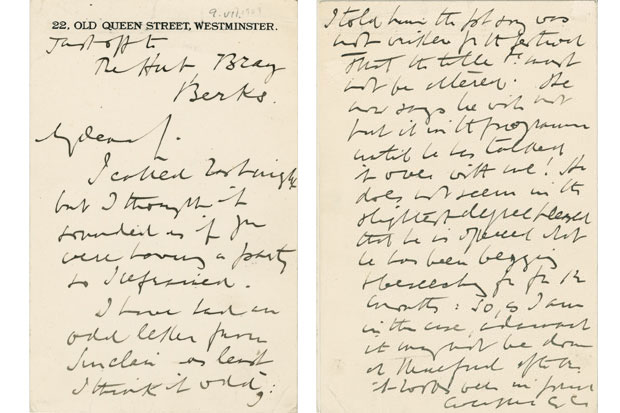 9. VII. 1909
22, OLD QUEEN STREET, WESTMINSTER.
Just off to
The Hut Bray
Berks.
My dear J.
I called last night
but I thought it
sounded as if you
were having a party
so I refrained.
I have had an
odd letter from
Sinclair - as least
I think it odd,:
I told him the part song was
not written for the festival
that the title must
not be altered. He
now says he will not
put it in the programme
until he has talked
it over with me! He
does not seem in the
slightest degree pleased
that he is offered what
he has been begging
& beseeching for for 12
months: so, as I am
in the case, & dismast
it may not be done
at Hereford after all
it looks